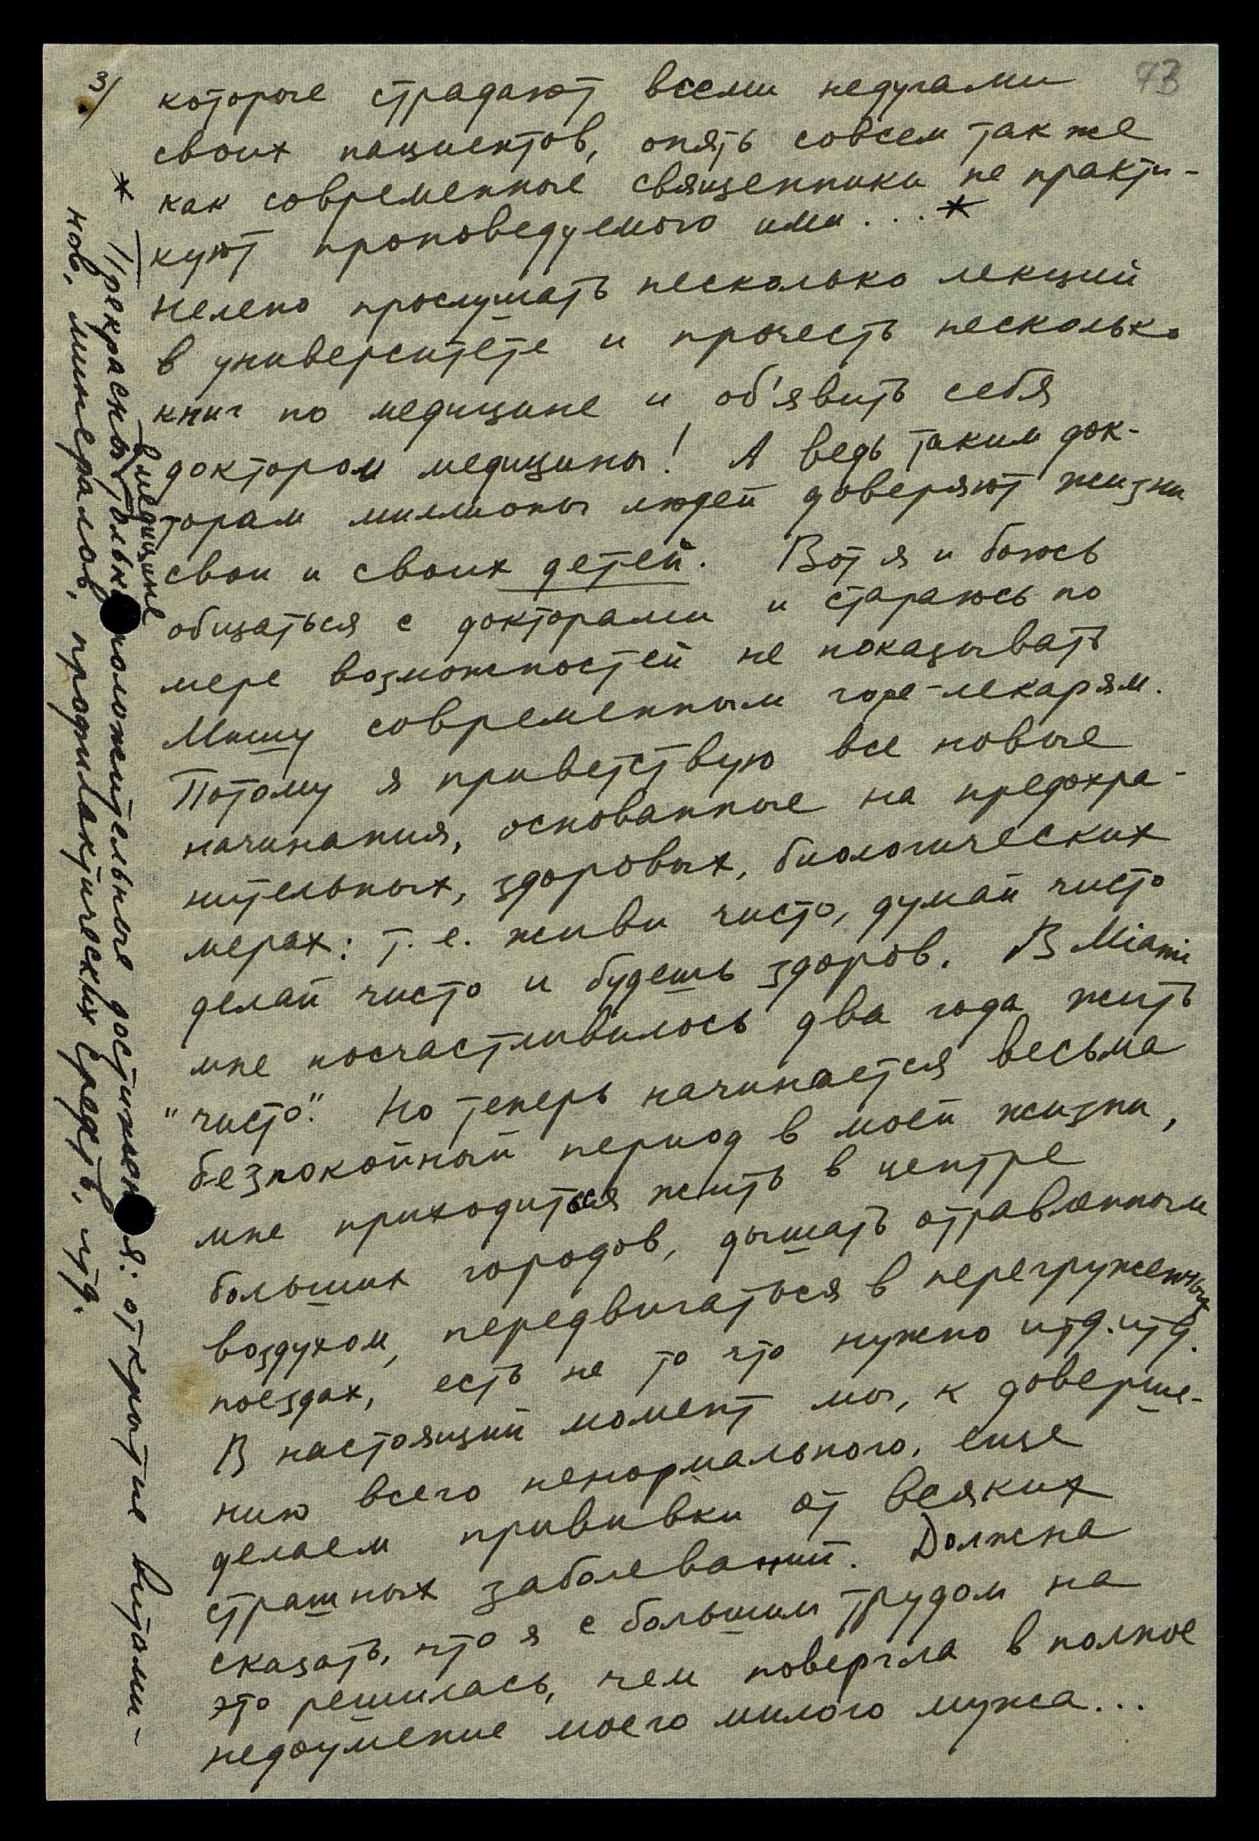 3/
73
которые страдают всеми недугами
своих пациентов, опять совсем также
как современные священники не практи-
куют проповедуемого ими... *
Нелепо прослушать несколько лекций
в университете и прочесть несколько
книг по медицине и об'явить себя
доктором медицины! А ведь таким док-
торам миллионы людей доверяют жизни
свои и своих детей. Вот я и боюсь
общаться с докторами и стараюсь по
мере возможностей не показывать
Мишу современным горе-лекарям.
Потому я приветствую все новые
начинания, основанные на предохра-
нительных, здоровых, биологических
мерах: т.е. живи чисто, думай чисто
делай чисто и будешь здоров. В Miami
мне посчастливилось два года жить
"чисто". Но теперь начинается весьма
безпокойный период в моей жизни,
мне приходиться жить в центре
больших городов, дышать отравленным
воздухом, передвигаться в перегруженных
поездах, есть не то что нужно итд. итд.
В настоящий момент мы, к доверше-
нию всего ненормального, еще
делаем прививки от всяких
страшных заболеваний. Должна
сказать, что я с большим трудом на
это решилась, чем повергла в полное
недоумение моего милого мужа...
* Прекрасны в медицине только положительные достижения: открытие витами-
нов, минералов, профилактических средств, итд.